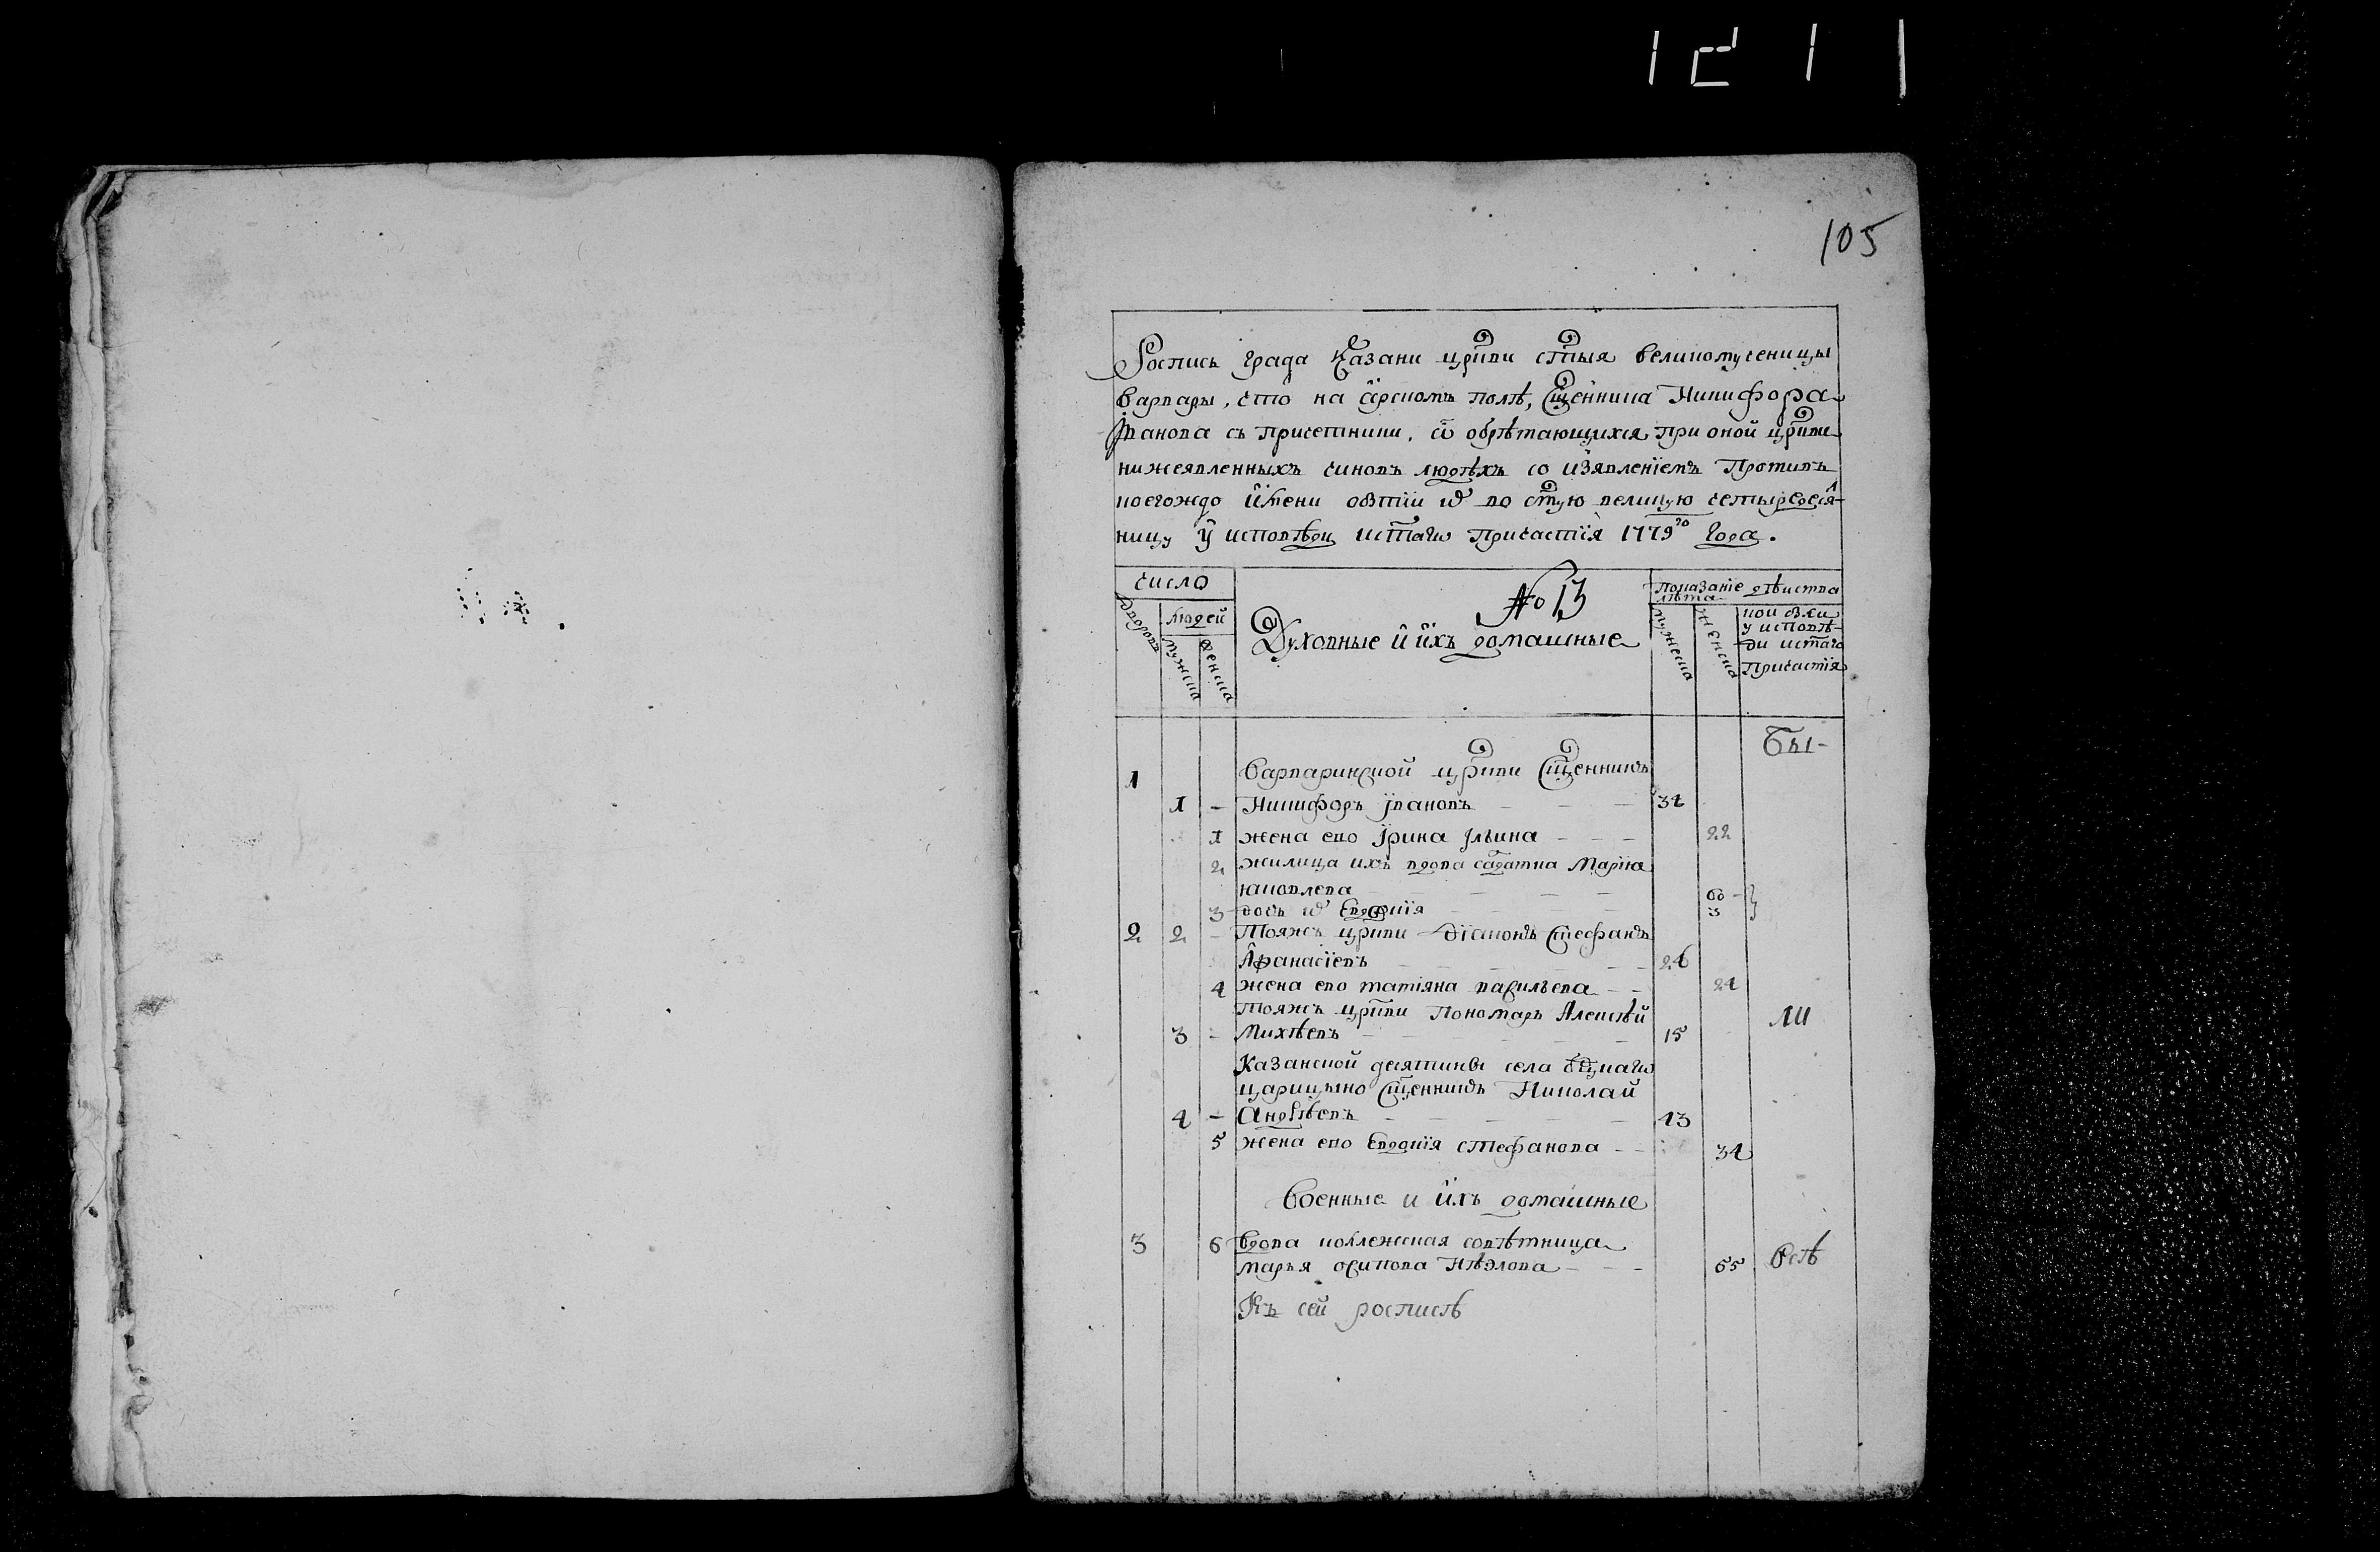 1211
105
Роспись града Казани цркви стыя великомученицы
варвары, что на арскомъ полѣ, Сщенника Никифора
Иванова съ причетники, и обрѣтающихся при оной цркви
нижеявленныхъ чиновъ людѣхъ со изявленіемъ Противъ
коегождо имени о бытіи ихъ во стую великую четыредеся-
ницу у исповѣди и стаго Причастія 1779го года.
число
дворовъ
людей
мужска
женска
No 13
Духовные и ихъ домашные
показаніе дѣиства
лѣта
мужеска
женска
кои были
у исповѣ-
ди и стаго
Причастія
Бы-
1 варваринской цркви Сщенникъ
1 - Никифоръ Ивановъ - - - 34
1 жена ево Ирина Ильина - - - 22
2 жилица ихъ вдова салдатка Марiна
яковлева - - - 60
3 дочь ея Евдокия 3
2 2 - Тояжъ цркви діаконъ Стефанъ
Афанасіевъ - - - 26
4 жена ево татіяна васильева - - 24
Тояжъ цркви Пономарь Алексѣй
3 - Михѣевъ - - - 15
ли
Казанской десятины села
царицыно Сщенникъ Николай
4 - Андрѣевъ - - - 43
5 жена ево Евдокия стефанова - - 34
военные и ихъ домашные
3 6 вдова коллежская совѣтница
марья осипова Нѣелова - - - 55 Всѣ
Къ сей росписѣ